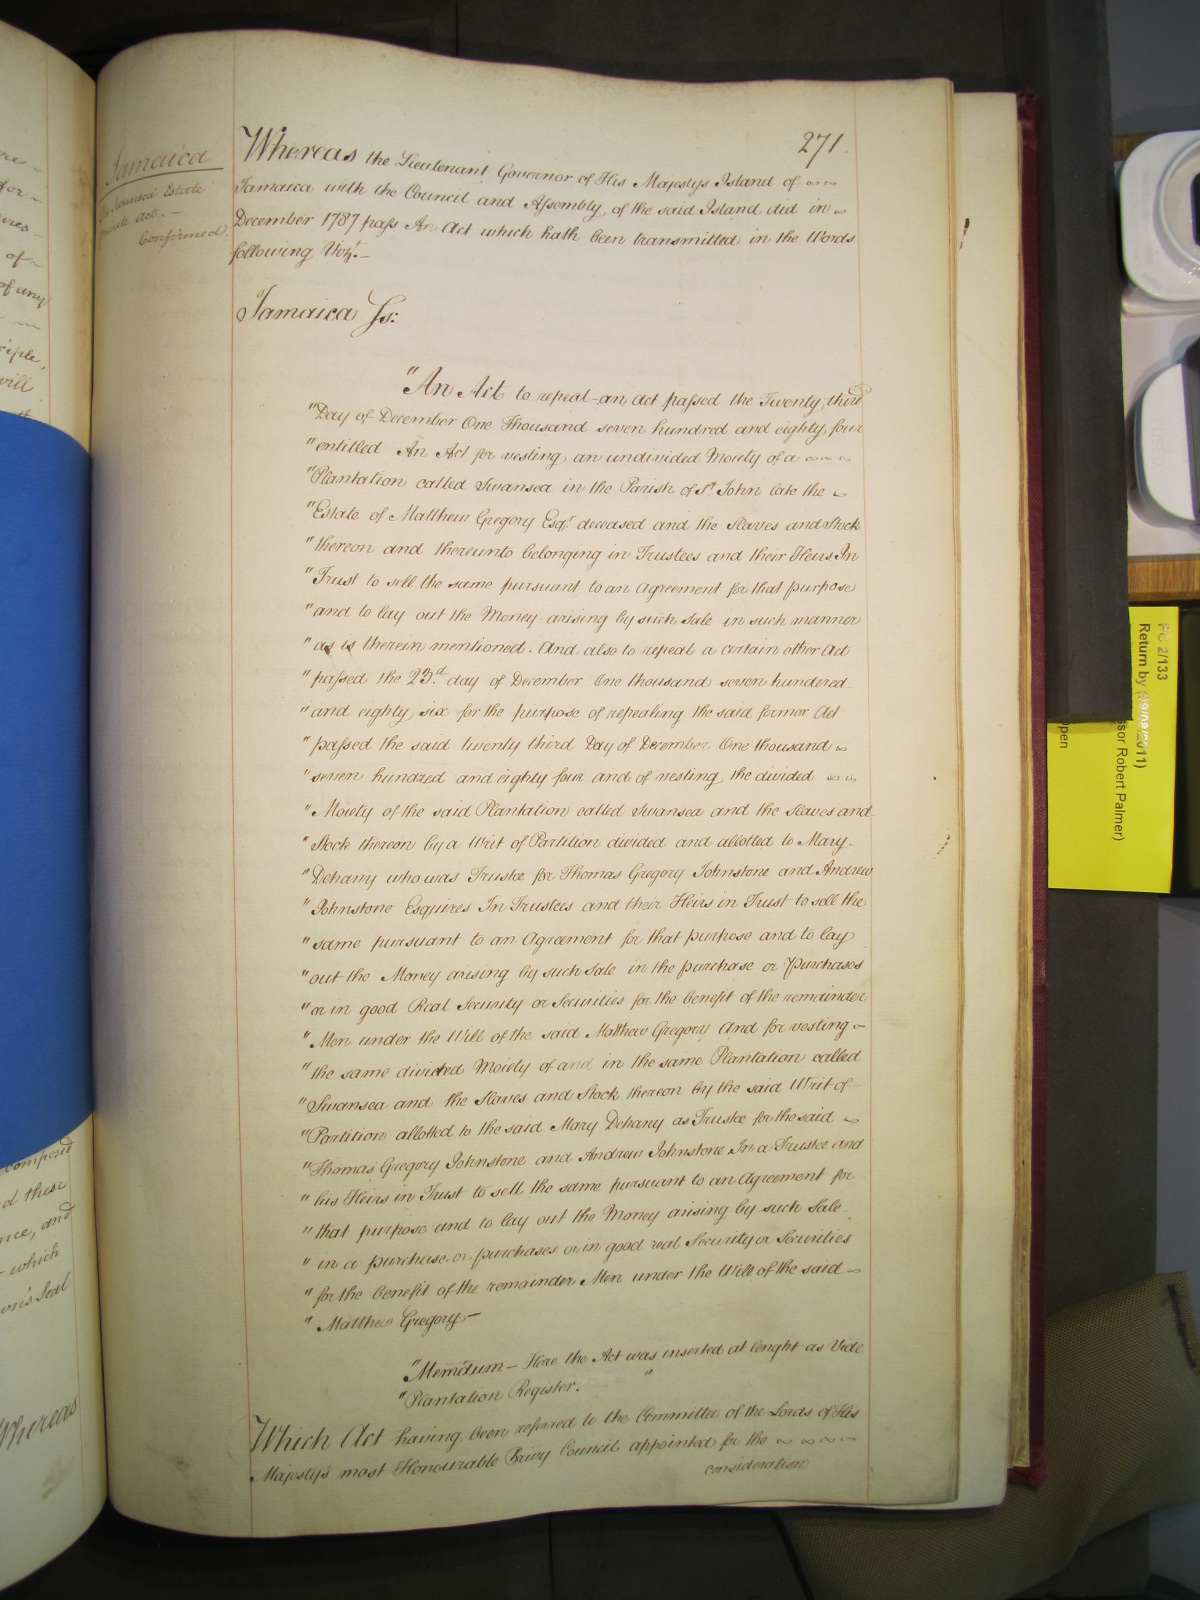 271.
Jamaica
Swansea Estate
private Act.—
Confirmed.
Whereas the Lieutenant Governor of His Majestys Island of
Jamaica with the Council and Assembly of the said Island did in
December 1787 pass An Act which hath been transmitted in the Words
following Vizt.—
Jamaica Ss:
"An Act to repeal an Act passed the Twenty third
"Day of December One Thousand seven hundred and eighty four
"entitled An Act for vesting an undivided Moiety of a
"Plantation called Swansea in the Parish of St. John late the
"Estate of Matthew Gregory Esqr. deceased and the Slaves and Stock
"thereon and thereunto belonging in Trustees and their Heirs In
"Trust to sell the same pursuant to an Agreement for that purpose
"and to lay out the Money arising by such Sale in such manner
"as is therein mentioned. And also to repeal a certain other Act
"passed the 23d. day of December One thousand seven hundered
"and eighty six for the purpose of repealing the said former Act
"passed the said twenty third Day of December One thousand
"seven hundred and eighty four and of vesting the divided
"Moiety of the said Plantation called Swansea and the Slaves and
"Stock thereon by a Writ of Partition divided and allotted to Mary
"Dehany who was Trustee for Thomas Gregory Johnstone and Andrew
"Johnstone Esquires In Trustees and their Heirs in Trust to sell the
"same pursuant to an Agreement for that purpose and to lay
"out the Money arising by such Sale in the purchase or Purchases
"or in good Real Security or Securities for the benefit of the remainder
"Men under the Will of the said Matthew Gregory And for vesting
"the same divided Moiety of and in the same Plantation called
"Swansea and the Slaves and Stock thereon by the said Writ of
"Partition allotted to the said Mary Dehany as Trustee for the said
"Thomas Gregory Johnstone and Andrew Johnstone In a Trustee and
"his Heirs in Trust to sell the same pursuant to an Agreement for
"that purpose and to lay out the Money arising by such Sale
"in a purchase or purchases or in good real Security or Securities
"for the benefit of the remainder Men under the Will of the said
"Matthew Gregory—
"Memdum— Here the Act was inserted at lenght as Vide
"Plantation Register. "
Which Act having been referred to the Committee of the Lords of His
Majesty's most Honourable Privy Council appointed for the
consideration
of
of any
will
composed
d these
and
which
on's Seal
Whereas
PC 2/133
Return by (09/08/2011)
sor Robert Palmer)
pen